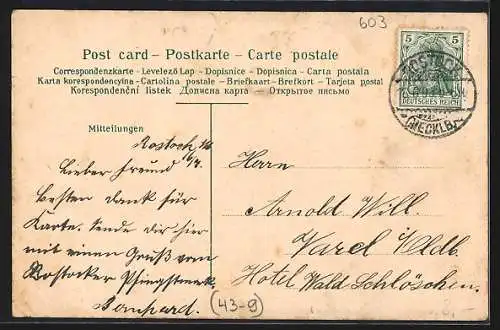 603
Post card – Postkarte – Carte postale
Correspondenzkarte - Levelező Lap - Dopisnice - Dopisnica - Carta postala
Karta korespondencyjna - Cartolina postale - Briefkaart - Brefkort - Tarjeta postal
Korespondenční listek - Дописна карта - Открытое письмо
5 5
DEUTSCHES REICH
ROSTOCK
(MECKLB.)
Mitteilungen
Rostock,
Lieber Freund
besten Dank für
Karte. Sende dir hier
mit einen Gruß vom
Rostocker Pfingstmark.
Bernhard.
Herrn
Arnold Will.
Varel i/Oldb.
Hotel Wald Schlöschen.
43-9